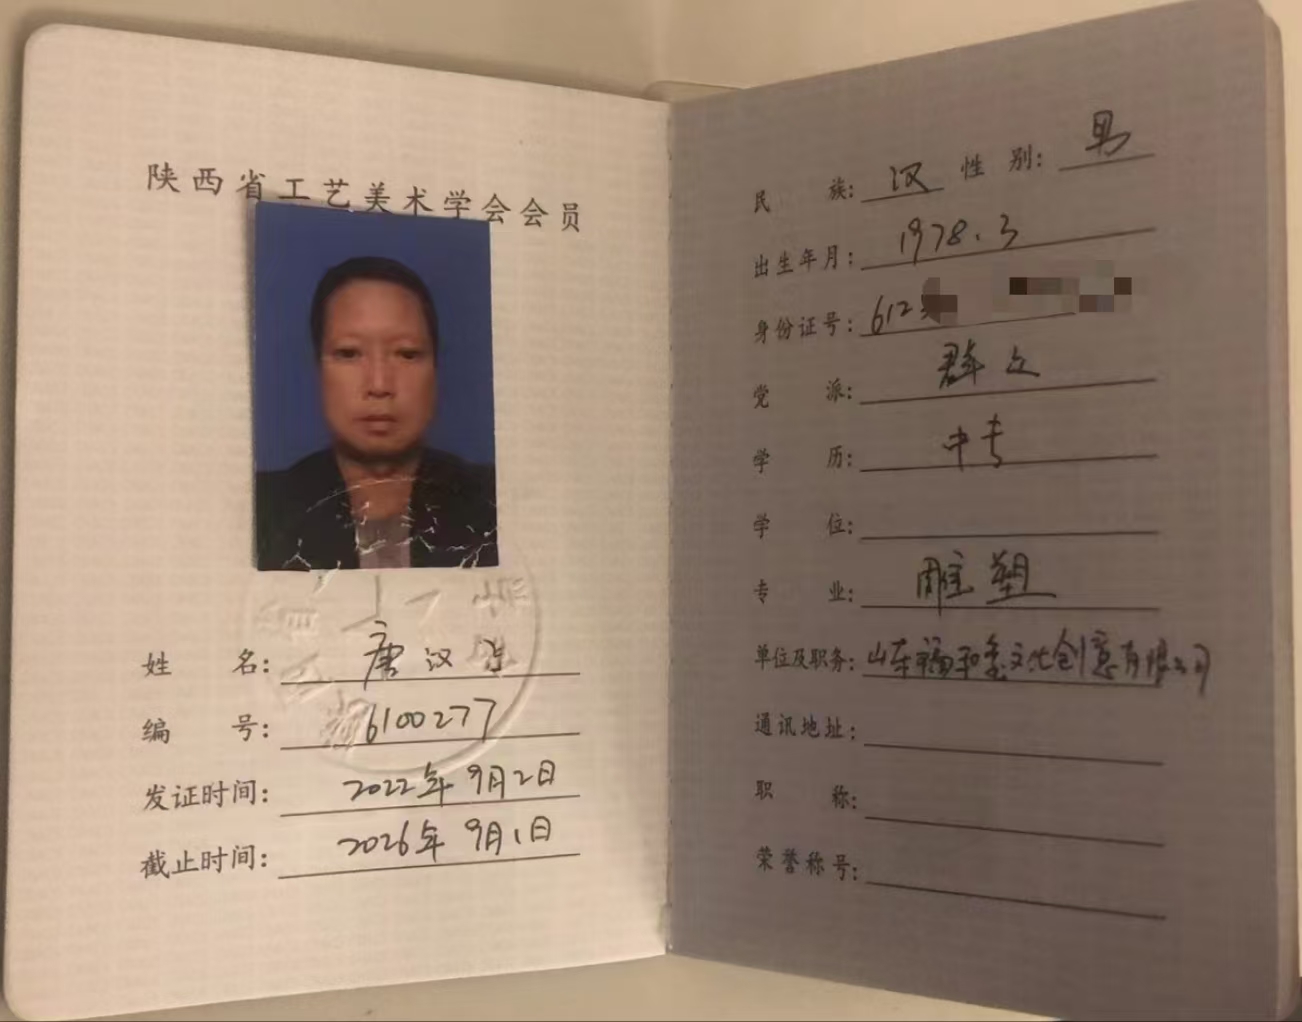 陕西省工艺美术学会会员
姓 名: 唐汉
编 号: 6100277
发证时间: 2022年9月2日
截止时间: 2026年9月1日
民 族: 汉 性 别: 男
出生年月: 1978.3
身份证号: 612
党 派: 群众
学 历: 中专
学 位:
专 业: 雕塑
单位及职务: 山东福和圣文化创意有限公司
通讯地址:
职 称:
荣誉称号: